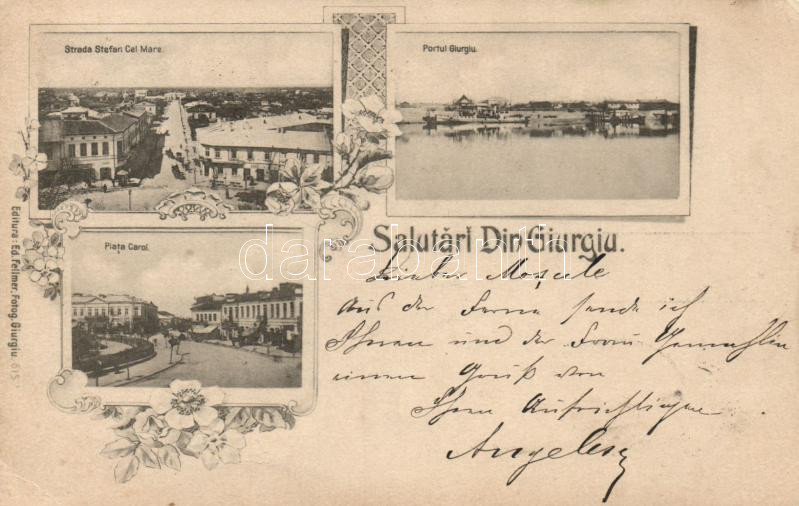 Strada Stefan Cel Mare.
Portul Giurgiu.
Piața Carol.
Editura: Ed. Fellmer, Fotog. Giurgiu. 615
Salutări Din Giurgiu.
darabanth
Lieber
Aus der Ferne sende ich
Ihnen und der Frau Gemahlin
einen Gruß von
Ihrem Aufrichtigen